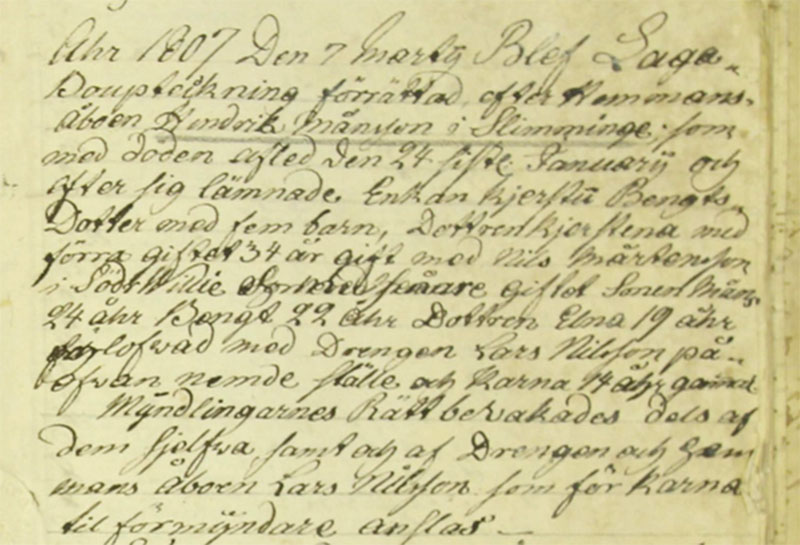 Åhr 1807 Den 7 Martÿ Blef Laga
Bouptekning förrättad efter Hemmans
åboen Hindrik Månsson i Slimminge som
med döden afled den 24 siste Januarÿ och
efter sig lämnade Enkan Kjerstÿ Bengts
Dotter med fem barn, Dottren Kjerstena med
förra giftet 34 år gift med Nils Mårtensson
i Södr Willie senare giftet Sonen Måns
24 åhr Bengt 22 åhr Dottren Elna 19 åhr
förlofwad med Drengen Lars Nilsson på
ofwan nemde ställe och Karna 14 åhr gammal
Mÿndlingarnes Rätt bewakades dels af
dem sjelfwa samt och af Drengen och Hem
mans åboen Lars Nilsson som för Karna
til förmÿndare anslas